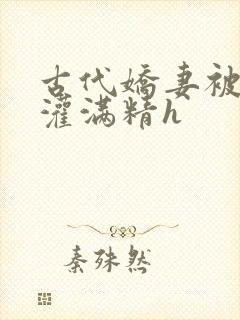 古代嬌妻被
灌满精h
秦殊然